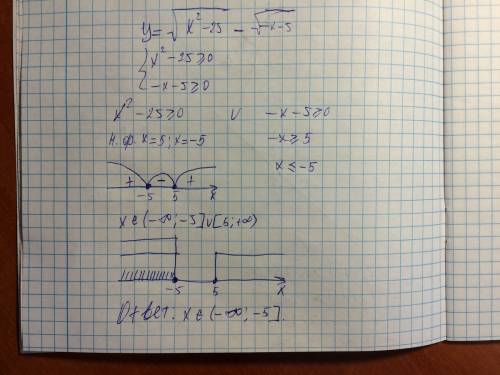 y = √(x²-25) - √(-x-5)
{ x²-25≥0
-x-5≥0
x²-25≥0 и -x-5≥0
н.ф. x=5; x=-5 -x≥5
x≤-5
+ - +
-5 5 x
x∈(-∞;-5]∪[5;+∞)
-5 5 x
Ответ: x∈(-∞;-5].